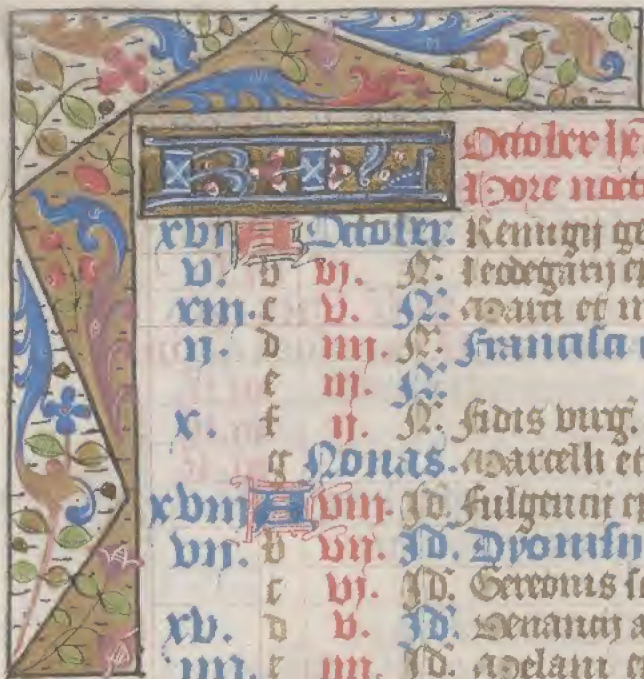 KL October he
Hore noct
xvi A October. Remigij ge
v. b vj. N. leodegarij e
xiii. c v. N. Marci et m
ij. d iiij. N. Francisci
e iij. N.
x. f ij. N. Fidis virg.
g Nonas. Marcelli et
xviij A viij. Id. Fulgencij e
vij. b vij. Id. Dyonisii
c vj. Id. Gereonis s
xv. d v. Id. Venancij a
iiij. e iiij. Id.